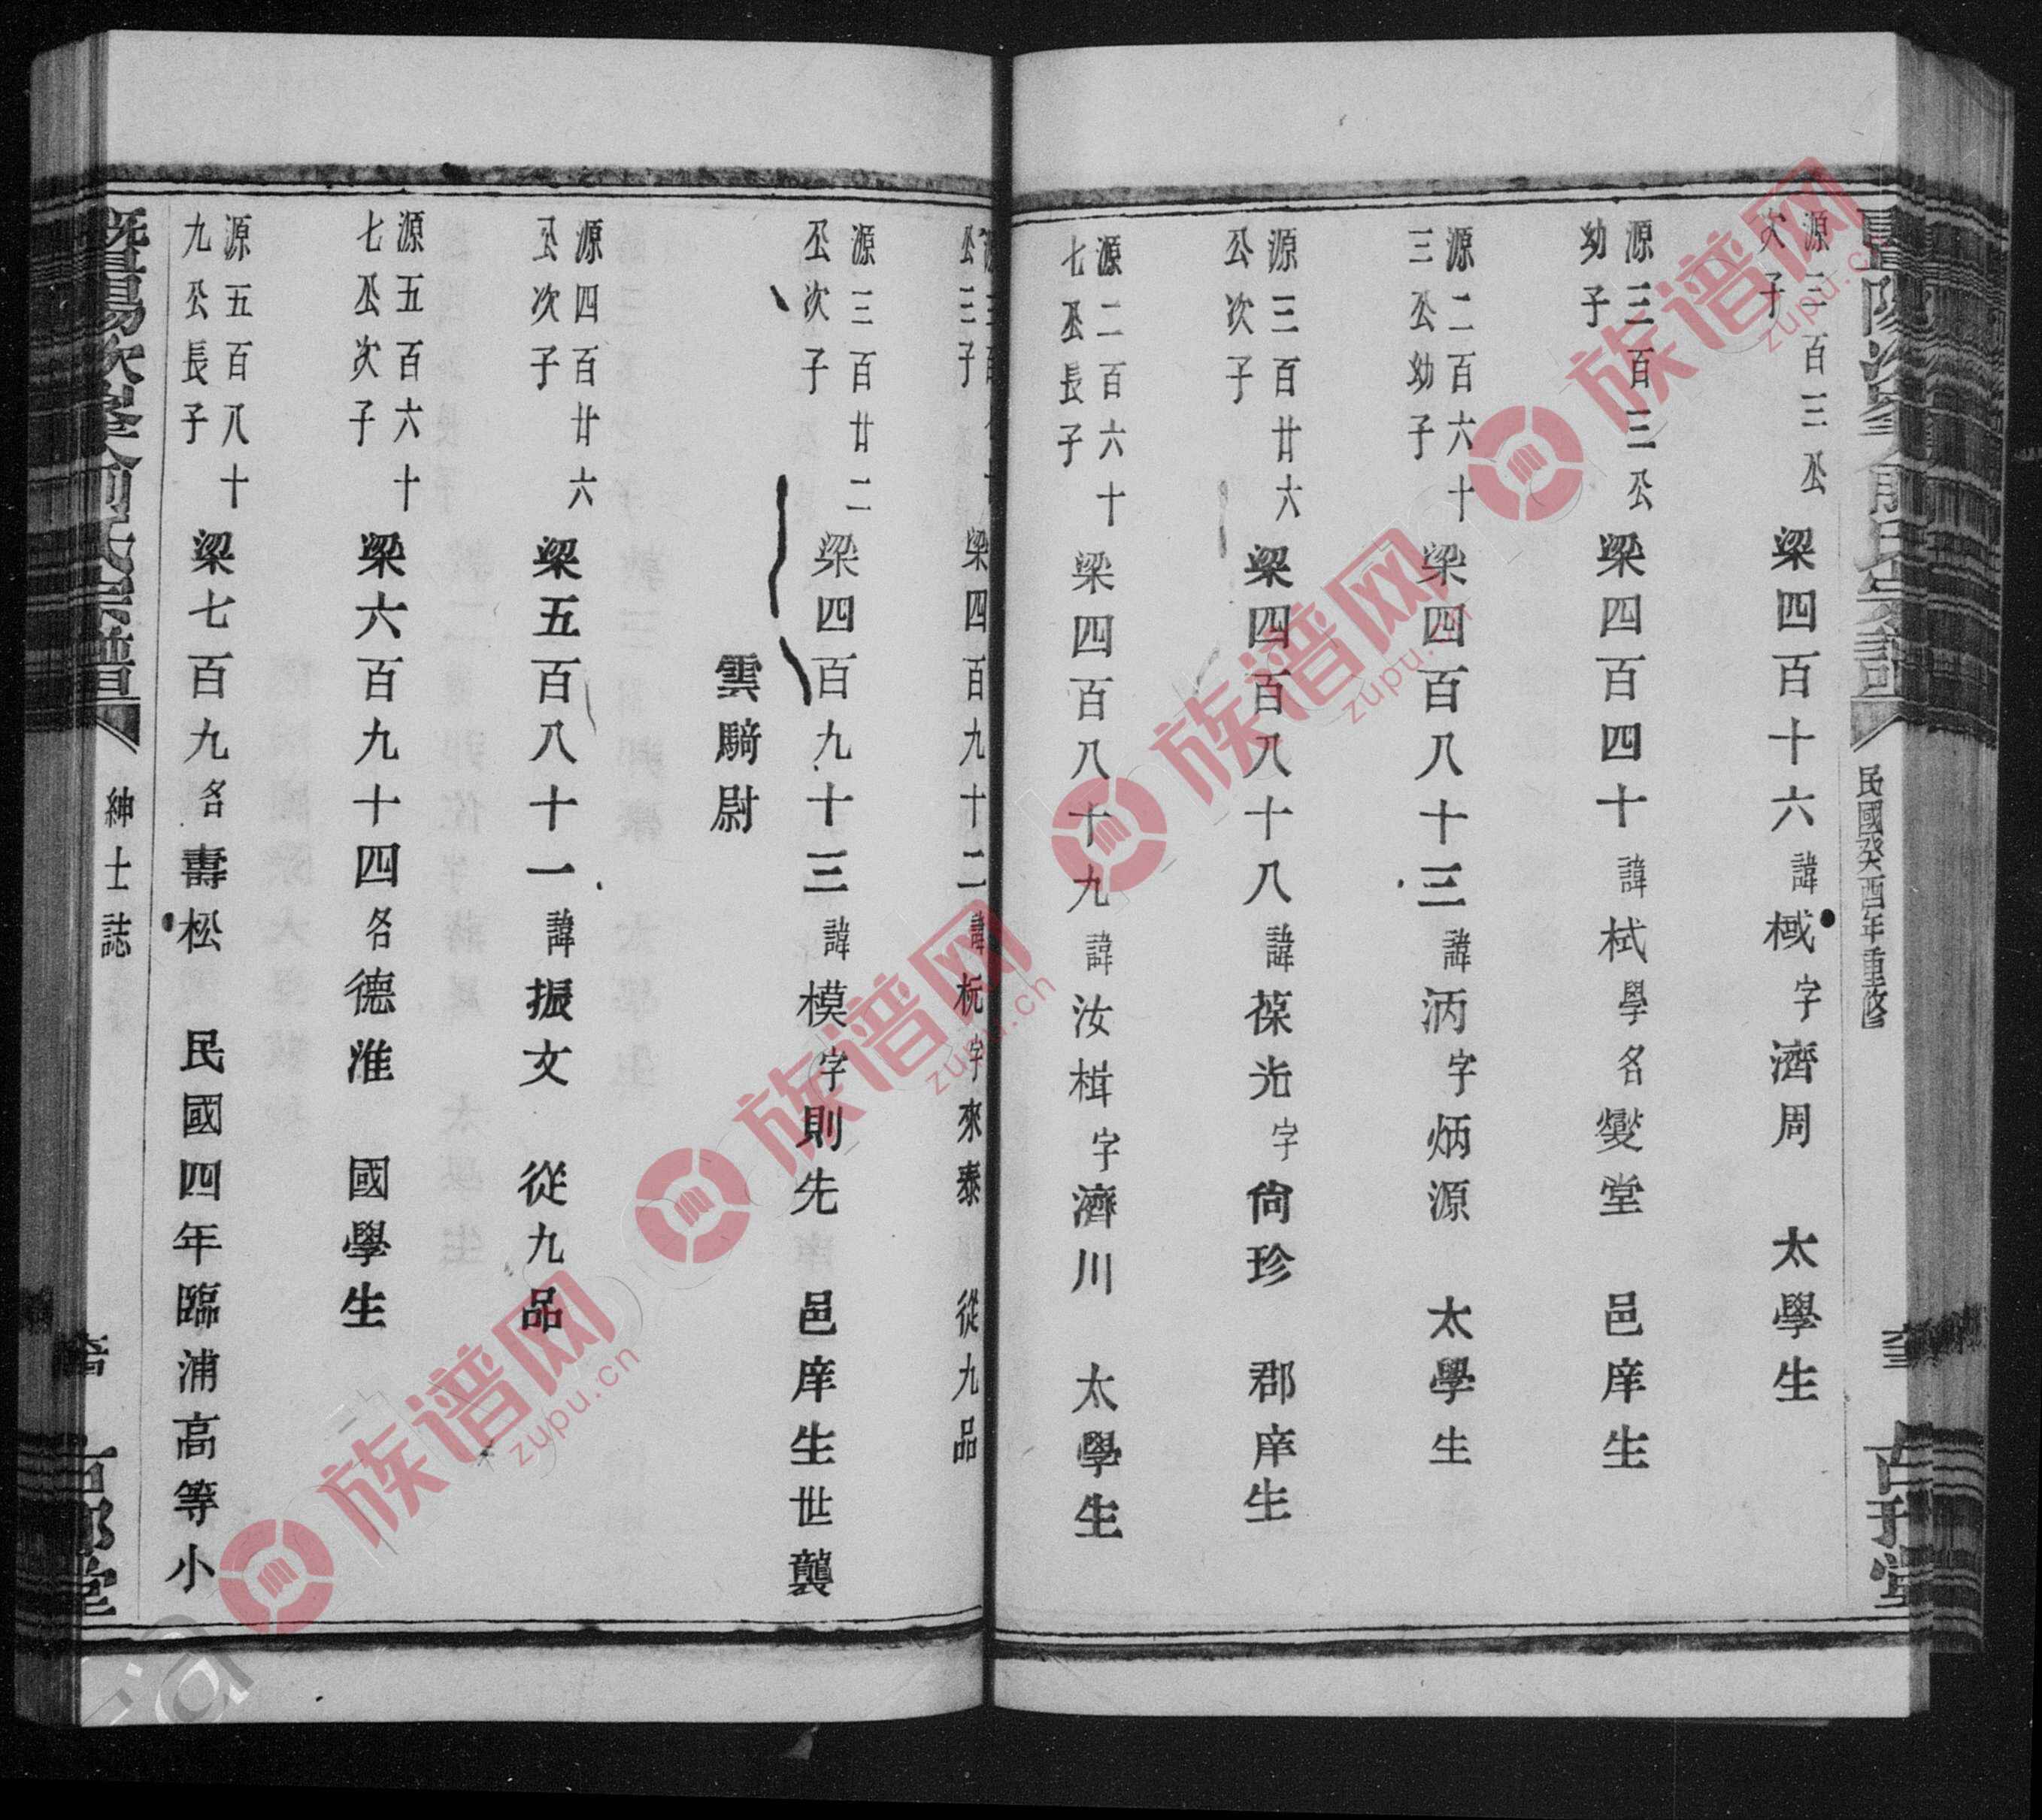 民國癸酉年重修
源三百三公
次子
梁四百十六諱棫字濟周 太學生
源三百三公
幼子
梁四百四十諱栻學名燮堂 邑庠生
源二百六十
三公幼子
梁四百八十三諱洏字炳源 太學生
源三百廿六
公次子
梁四百八十八諱葆光字尙珍 郡庠生
源二百六十
七公長子
梁四百八十九諱汝楫字濟川 太學生
公三子
梁四百九十二諱杬字來泰 從九品
源三百廿二
公次子
梁四百九十三諱模字則先 邑庠生世襲
雲騎尉
源四百廿六
公次子
梁五百八十一諱振文 從九品
源五百六十
七公次子
梁六百九十四名德淮 國學生
源五百八十
九公長子
梁七百九名壽松 民國四年臨浦高等小
紳士誌
族谱网
zupu.cn
族谱网
zupu.cn
族谱网
zupu.cn
族谱网
zupu.cn